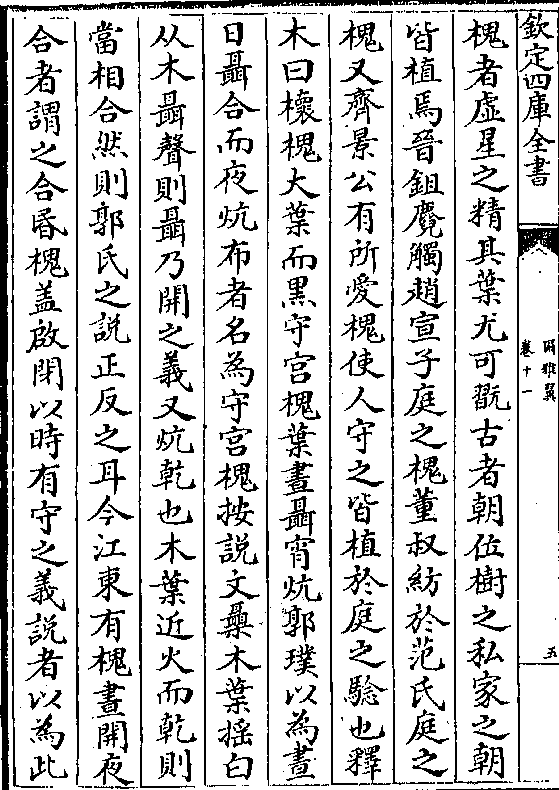 欽定四庫全書
爾雅翼
卷十一
五
槐者虛星之精其葉尤可翫古者朝位樹之私家之朝
皆植焉晉鉏麑觸趙宣子庭之槐董叔紡於范氏庭之
槐又齊景公有所愛槐使人守之皆植於庭之驗也釋
木曰櫰槐大葉而黒守宫槐葉晝聶宵炕郭璞以為晝
日聶合而夜炕布者名為守宫槐按説文𣛕木葉揺白
从木聶聲則聶乃開之義又炕乾也木葉近火而乾則
當相合然則郭氏之説正反之耳今江東有槐晝開夜
合者謂之合昬槐盖啟閉以時有守之義説者以為此